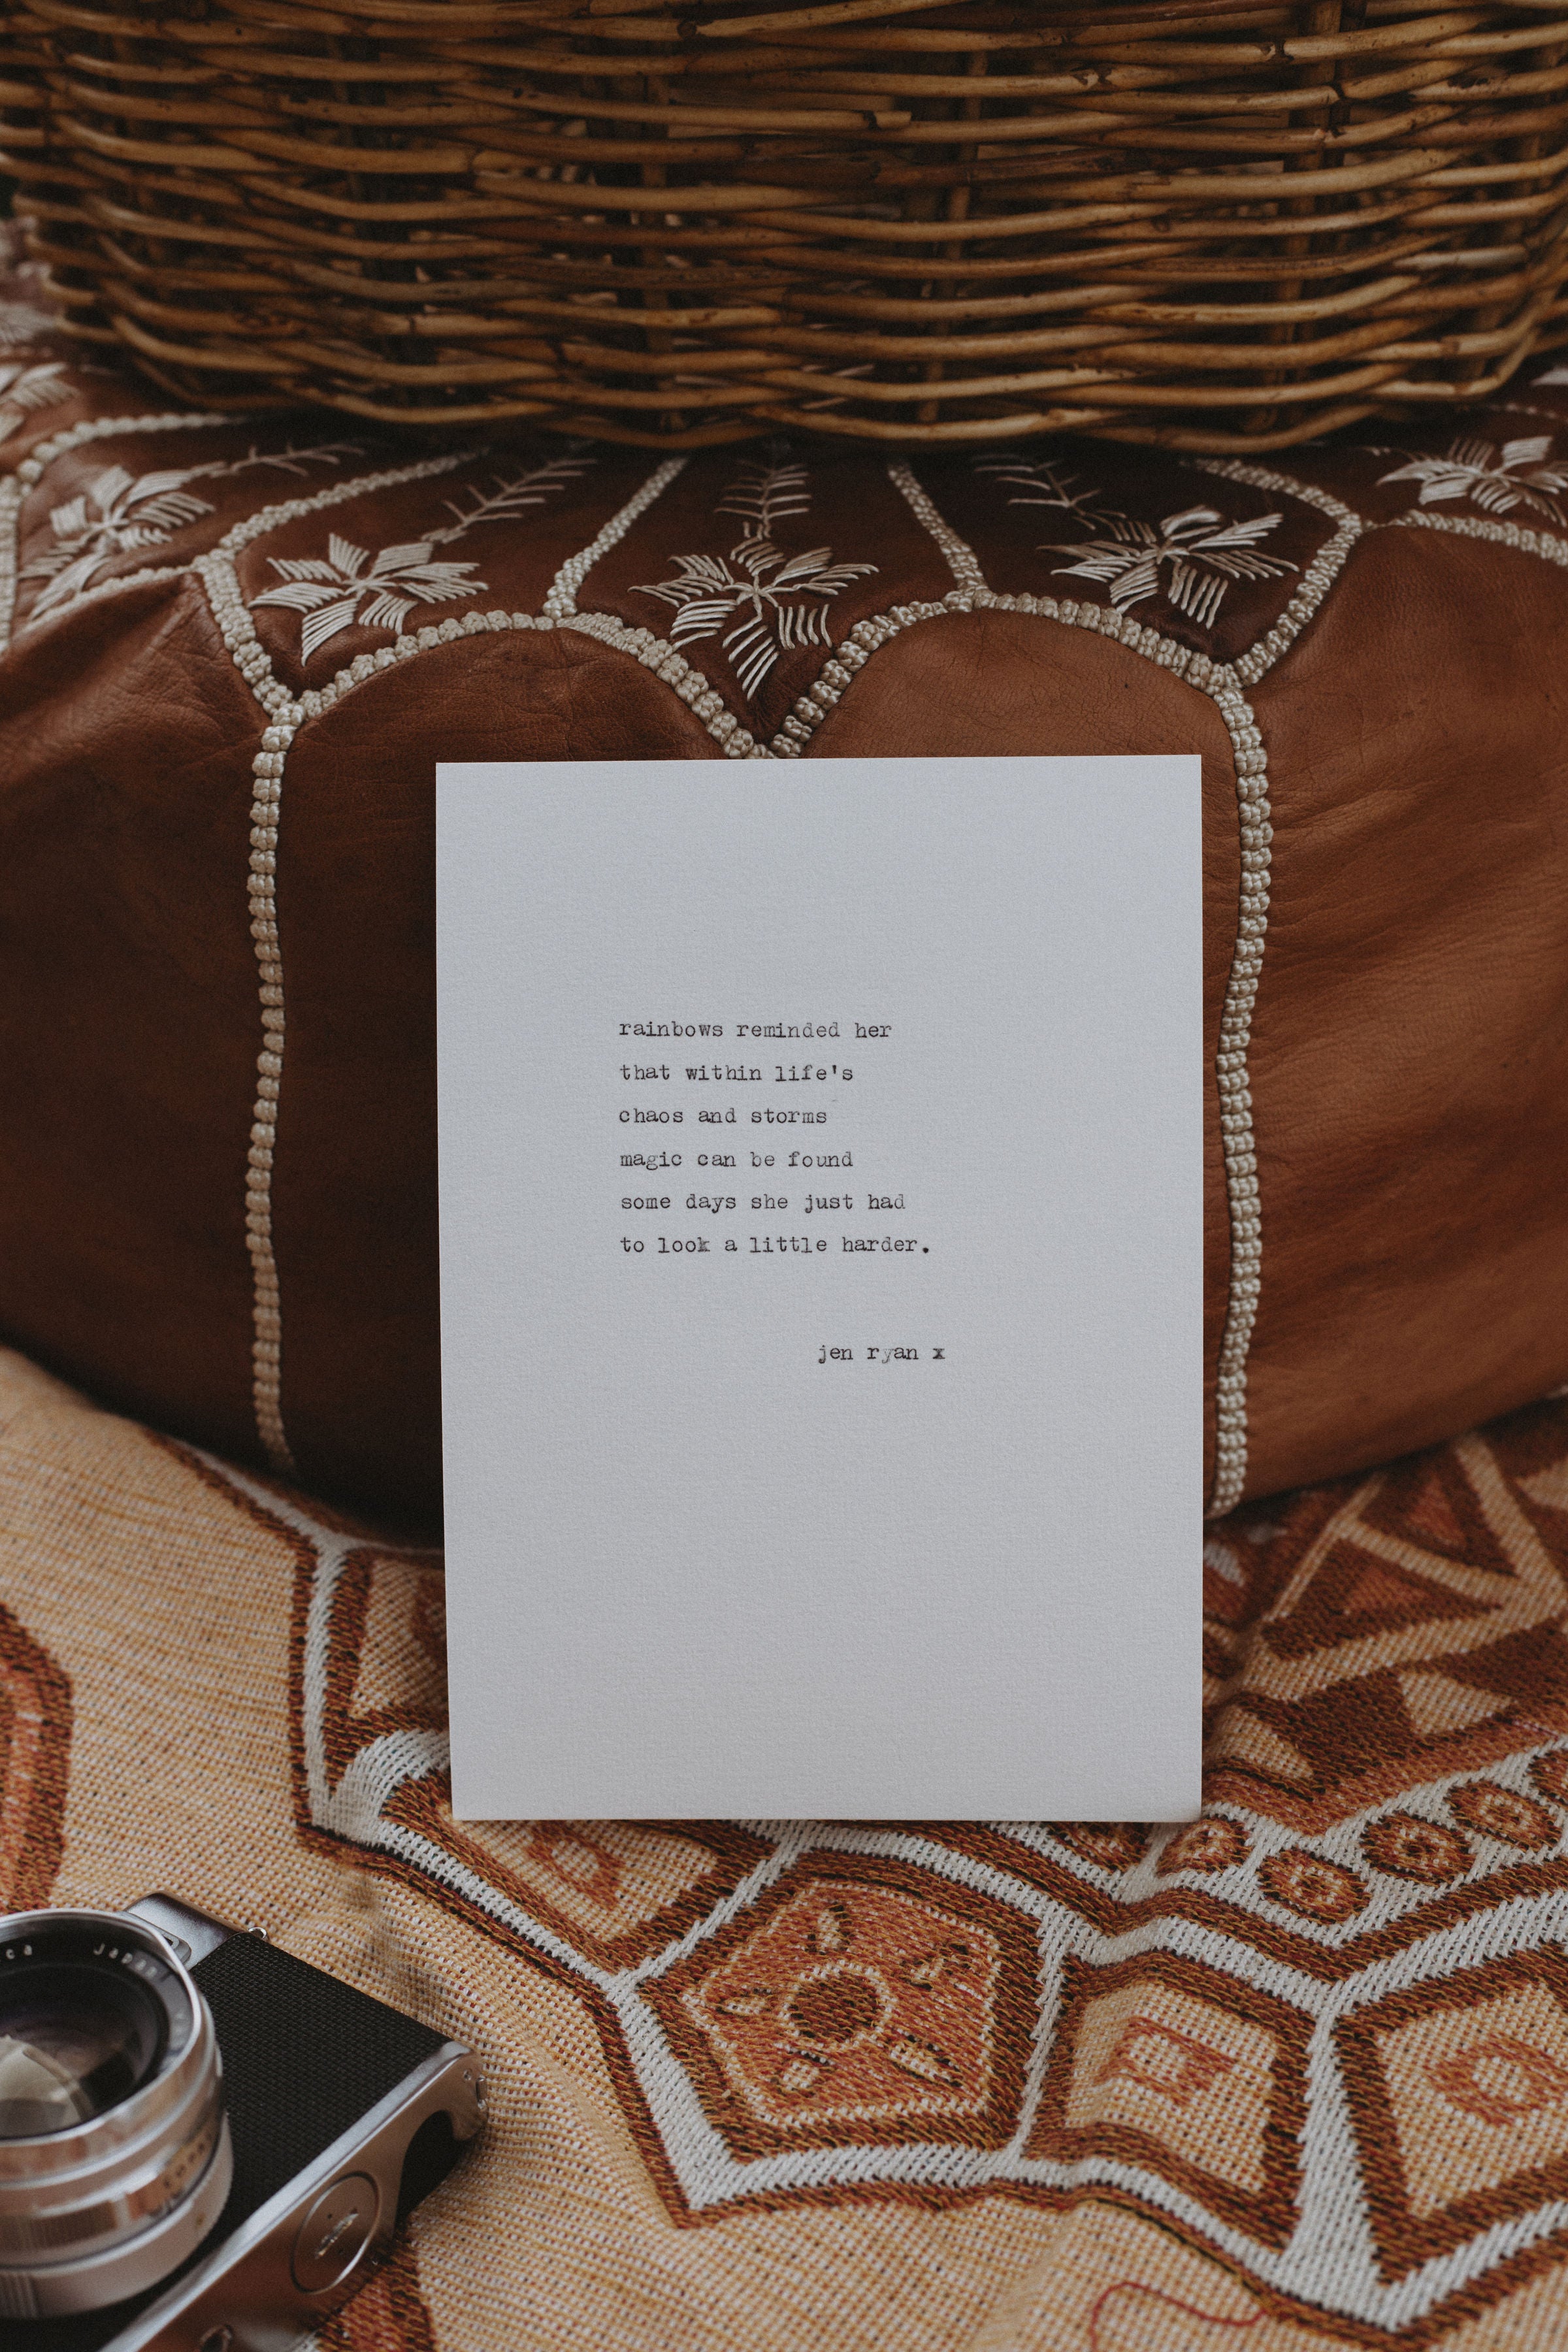 rainbows reminded her
that within life's
chaos and storms
magic can be found
some days she just had
to look a little harder.
jen ryan x
Japan